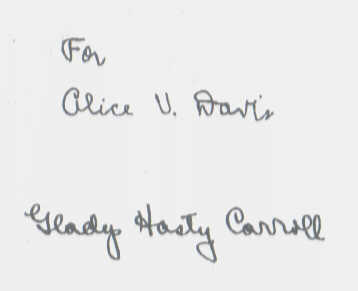 For
Alice V. Davis
Gladys Hasty Carroll